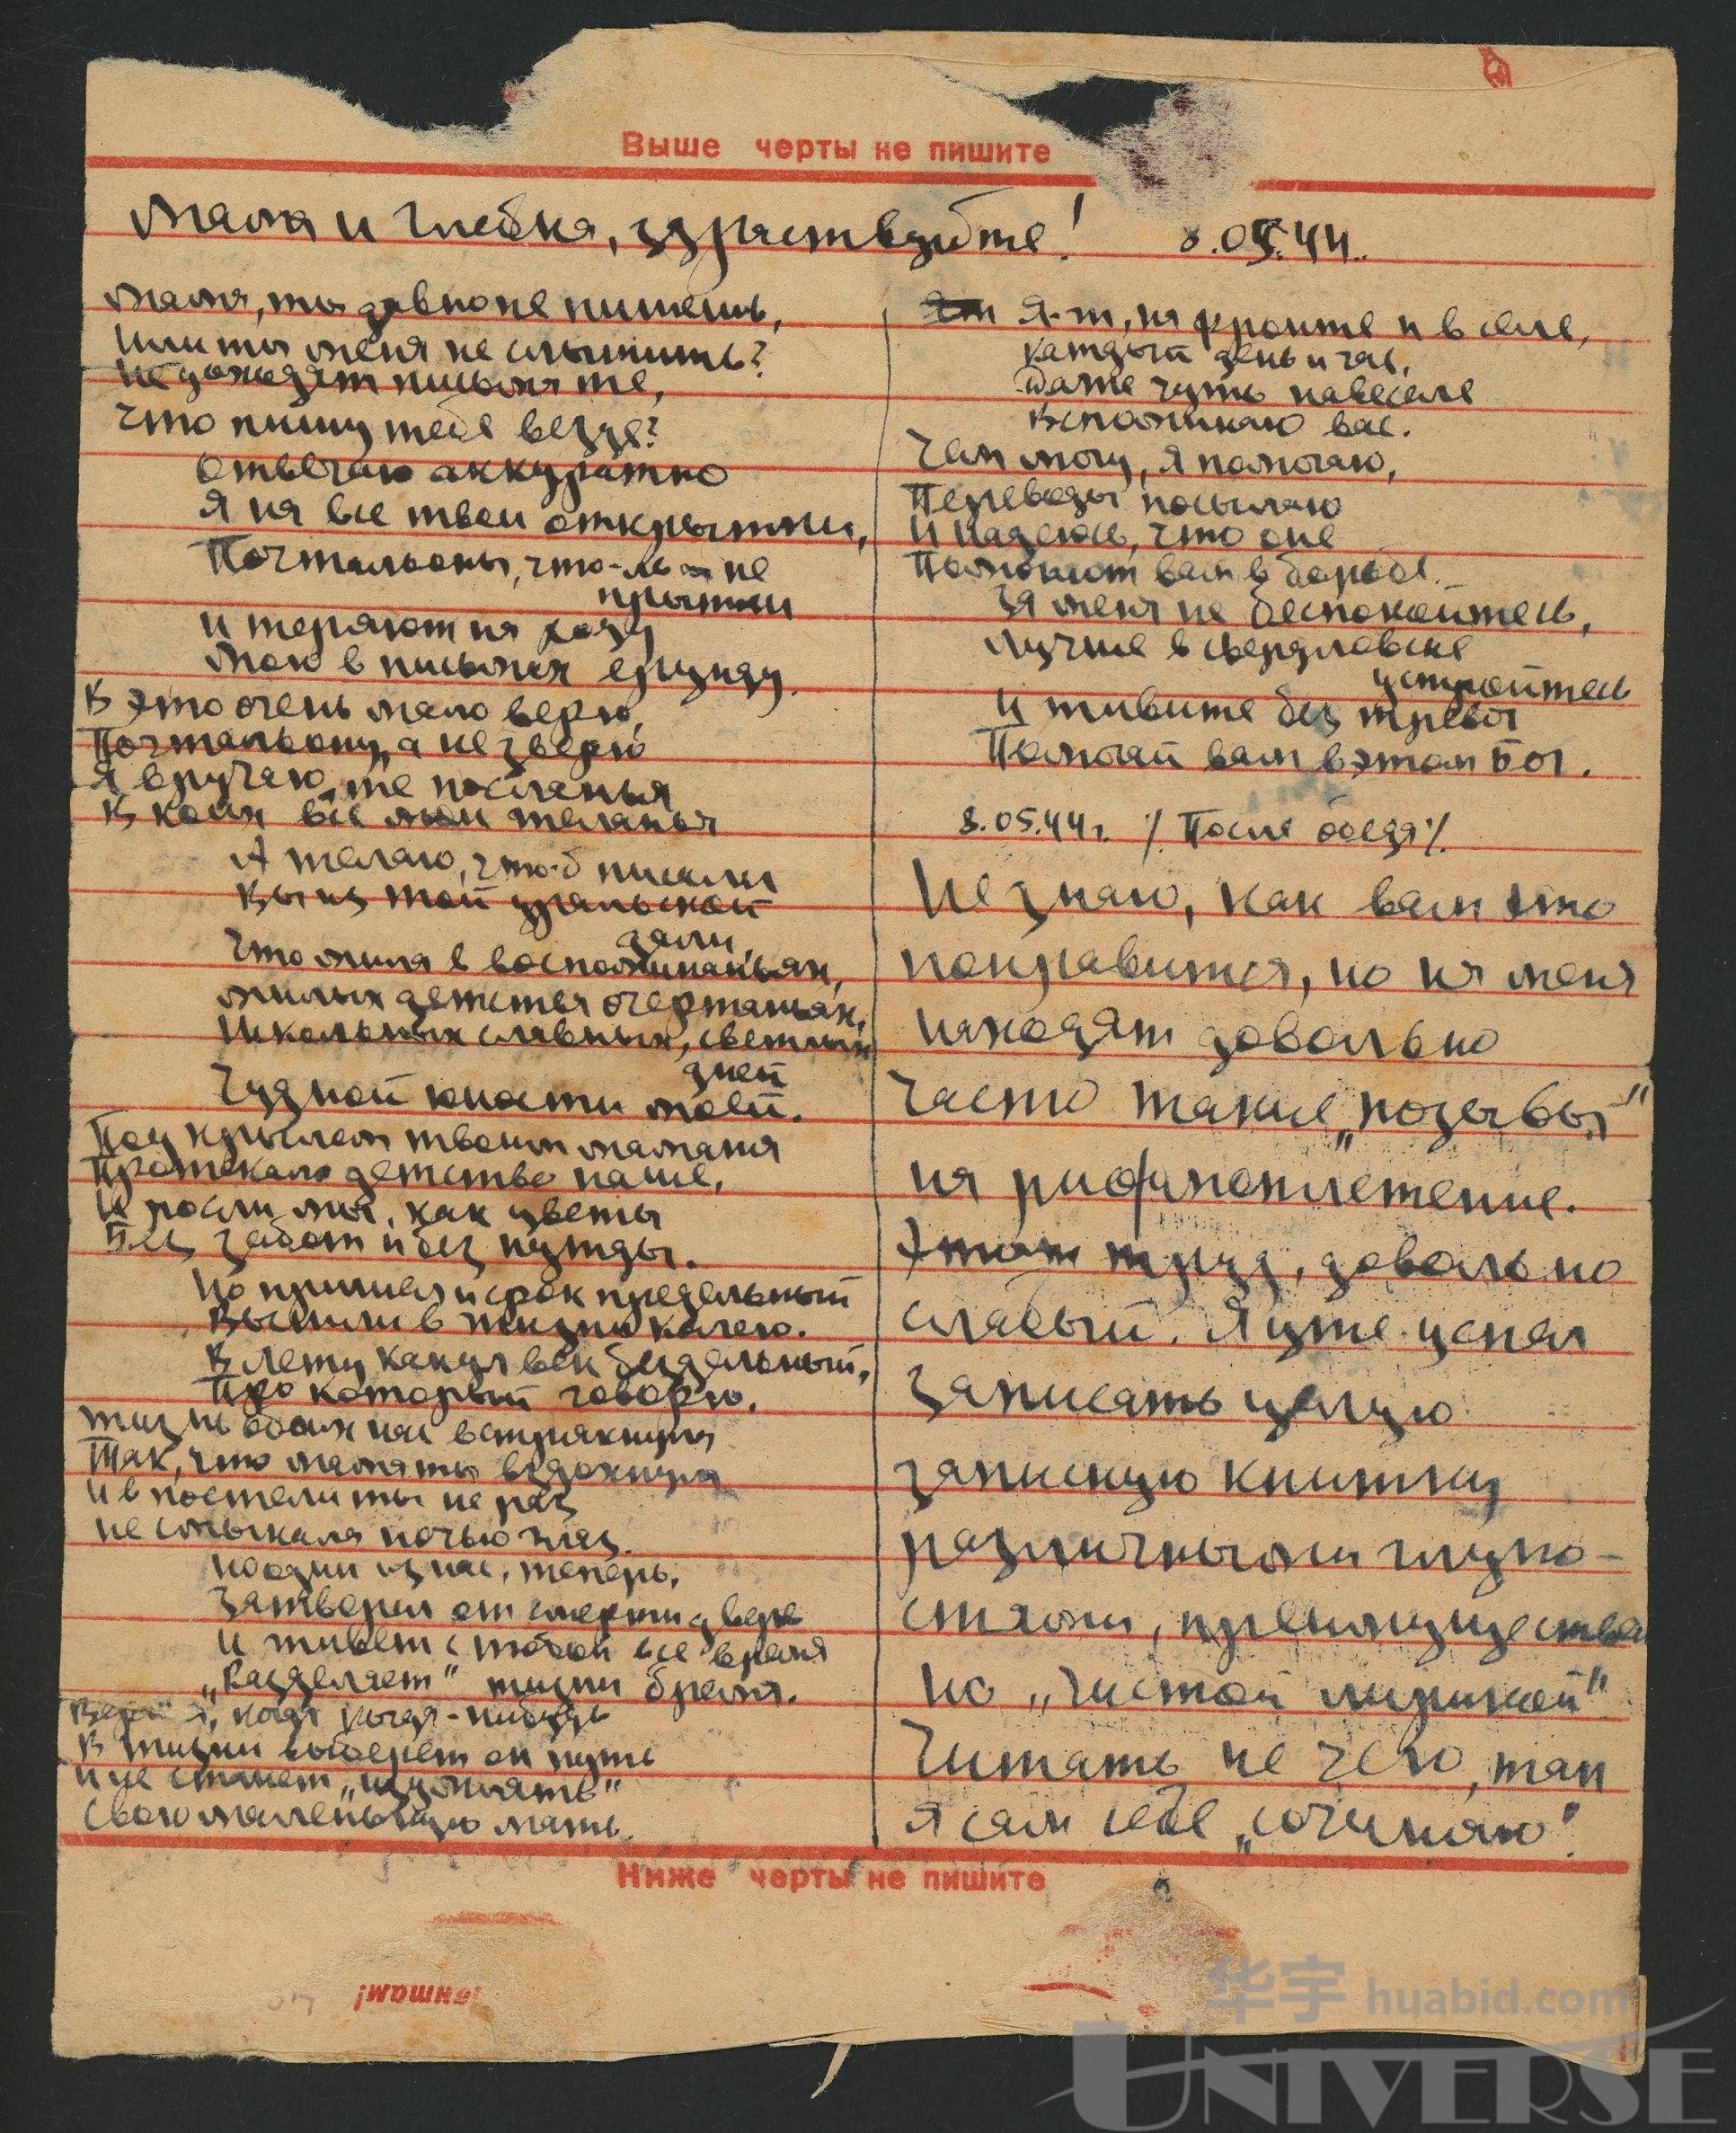 Выше черты не пишите
Мама и Глебка, здраствуйте! 8.05.44.
Мама, ты давно не пишешь,
Или ты меня не слышишь?
Не доходят письма те,
Что пишу тебе везде?
Отвечаю аккуратно
Я на все твои открытки,
Почтальоны, что-ль не
прытки
И теряют на ходу
Мою в письмах ерунду.
В это очень мало верю,
Почтальону, а не зверю
Я вручаю те посланья
В коих все мои желанья
А желаю, что-б писали
Вы из той уральской
дали,
Что жила в воспоминаньях,
Милых детства очертаньях,
Школьных славных, светлых
дней
Чудной юности моей.
Под крылом твоим мамаша
Протекало детство наше,
И росли мы, как цветы
Без забот и без нужды.
Но пришел и срок предельный
Вышли в жизни колею.
В лету канул век бездельный,
Про который говорю.
Жизнь обоих нас встряхнула
Так, что мама ты вздохнула
И в постели ты не раз
Не смыкала ночью глаз.
Но один из нас, теперь,
Затворил от смерти дверь
И живет с тобой все время
„Разделяет" жизни бремя.
Верю я, когда нибудь
В жизни выберет он путь
И не станет „изумлять"
Свою маленькую мать.
Я-ж, на фронте и в селе,
Каждый день и час,
Даже чуть навеселе
Вспоминаю вас.
Чем могу, я помогаю,
Переводы посылаю
И надеюсь, что оне
Помогают вам в борьбе.
За меня не беспокойтесь,
Лучше в Свердловске
устройтесь
И живите без тревог
Помогай вам в этом Бог.
8.05.44 г. /. После обеда /.
Не знаю, как вам это
понравится, но на меня
находят довольно
часто такие „позывы"
на рифмоплетение.
Этот труд, довольно
слабый. Я уже успел
записать целую
записную книжку
различными глупо-
стями, преимуществен
но „чистой лирикой"
Читать не чего, так
я сам себе „сочиняю".
Ниже черты не пишите
华宇 huabid.com
UNIVERSE